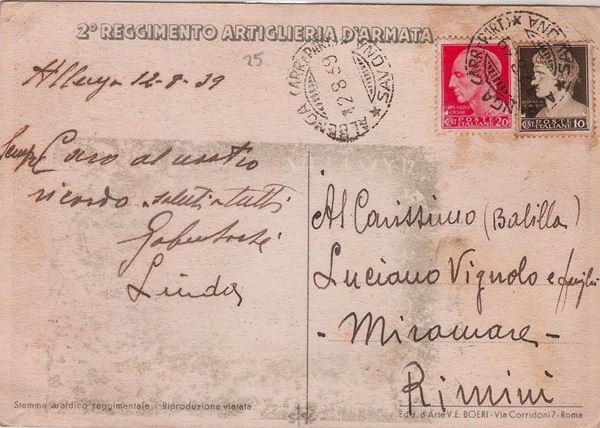 2° REGGIMENTO ARTIGLIERIA D'ARMATA
25
12-8-39
Sempre Caro al nostro
ricordo. saluti a tutti
Linda
ALBENGA (ARR. E PART.)
12.8.39
SAVONA
POSTE ITALIANE
CENT. 20
POSTE ITALIANE
CENT. 10
Al Carissimo (Balilla)
Luciano Vignolo e famiglia
- Miramare -
Rimini
Stemma araldico reggimentale - Riproduzione vietata
Ediz. d'Arte V. E. BOERI - Via Corridoni 7 - Roma